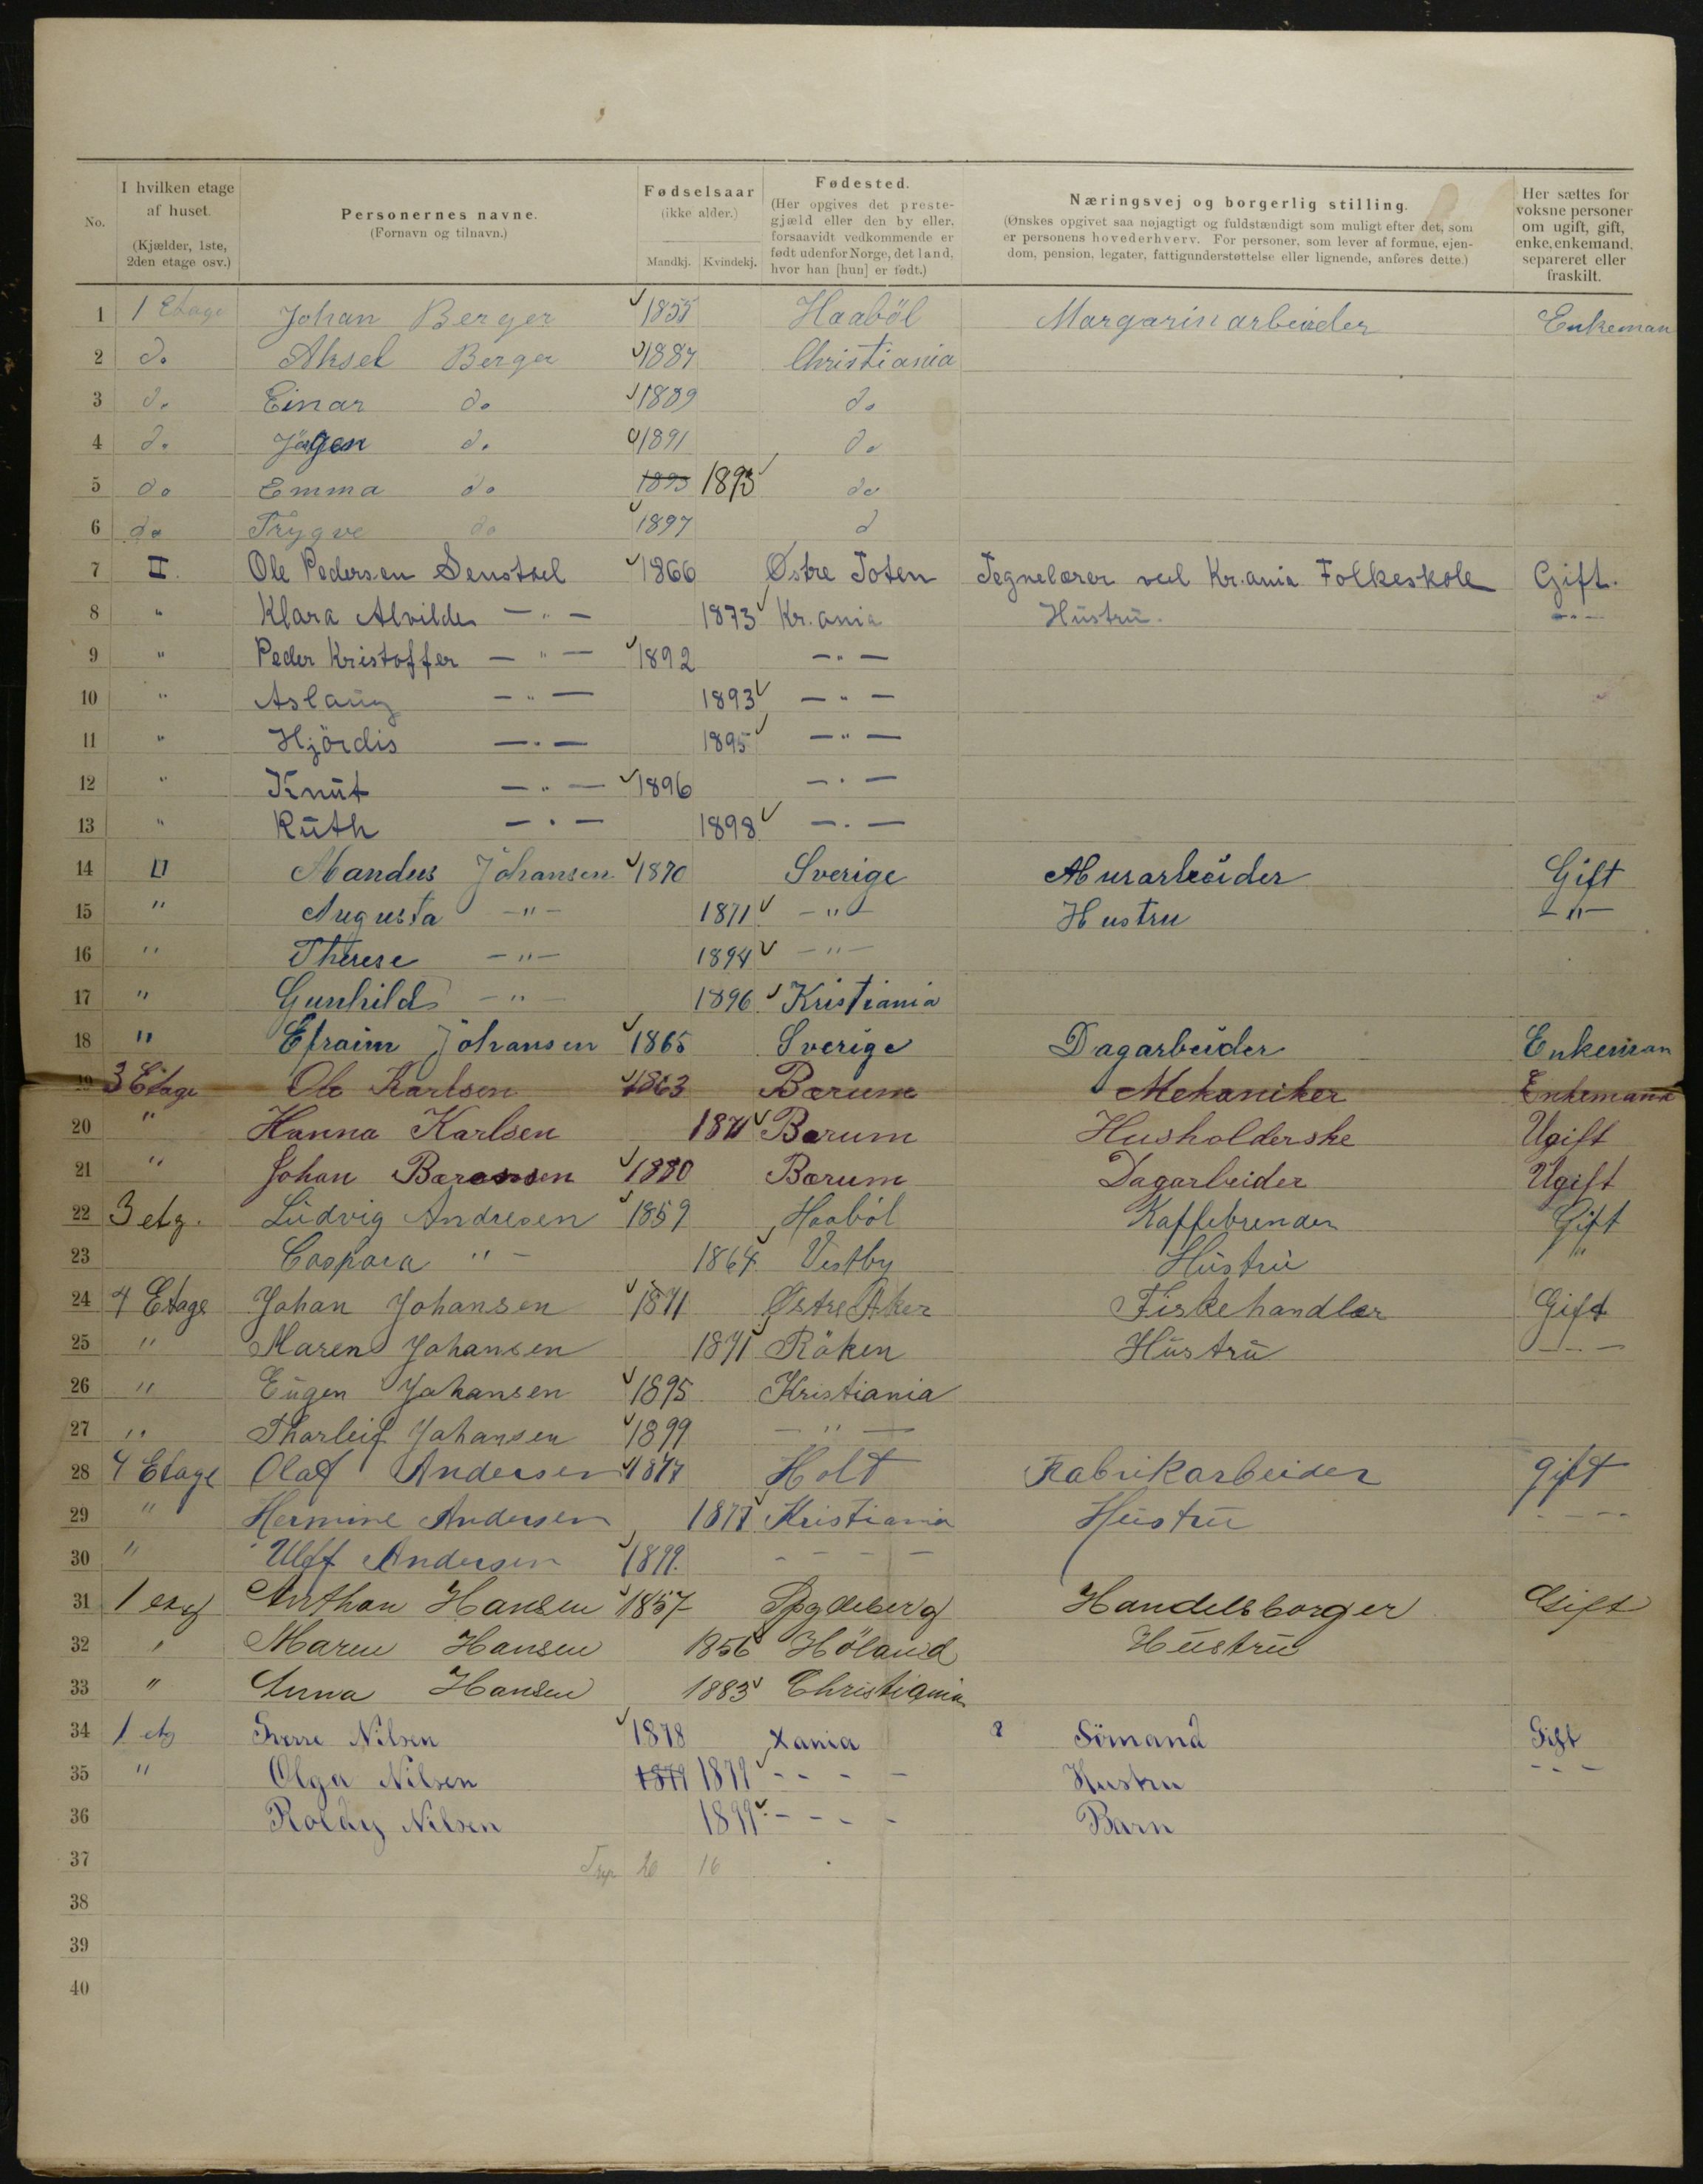 No. | I hvilken etage af huset. (Kjælder, 1ste, 2den etage osv.) | Personernes navne. (Fornavn og tilnavn.) | Fødselsaar (ikke alder.) Mandkj. Kvindekj. | Fødested. (Her opgives det prestegjæld eller den by eller, forsaavidt vedkommende er født udenfor Norge, det land, hvor han [hun] er født.) | Næringsvej og borgerlig stilling. (Ønskes opgivet saa nøjagtigt og fuldstændigt som muligt efter det, som er personens hovederhverv. For personer, som lever af formue, ejendom, pension, legater, fattigunderstøttelse eller lignende, anføres dette.) | Her sættes for voksne personer om ugift, gift, enke, enkemand, separeret eller fraskilt.
1 1 Etage Johan Berger 1855 Haaböl Margarinarbeider Enkeman
2 do Aksel Berger 1887 Christiania
3 do Einar do 1889 do
4 do Jörgen do 1891 do
5 do Emma do 1893 1893 do
6 do Trygve do 1897 d
7 II. Ole Pedersen Senstad 1866 Østre Toten Tegnelærer ved Kr.ania Folkeskole Gift.
8 " Klara Alvilde — " — 1873 Kr.ania Hustru. — " —
9 " Peder Kristoffer — " — 1892 — " —
10 " Aslaug — " — 1893 — " —
11 " Hjördis — " — 1895 — " —
12 " Knut — " — 1896 — " —
13 " Ruth — " — 1898 — " —
14 II Mandus Johansen 1870 Sverige Murarbeider Gift
15 " Augusta — " — 1871 — " — Hustru — " —
16 " Therese — " — 1894 — " —
17 " Gunhild — " — 1896 Kristiania
18 " Efraim Johansen 1865 Sverige Dagarbeider Enkeman
19 3 Etage Ole Karlsen 1863 Bærum Mekaniker Enkemann
20 " Hanna Karlsen 1871 Bærum Husholderske Ugift
21 " Johan 1880 Bærum Dagarbeider Ugift
22 3 etg. Ludvig Andresen 1859 Haaböl Kaffebrender Gift
23 Caspara " — 1864 Vestby Hustru "
24 4 Etage Johan Johansen 1871 Østre Aker Fiskehandler Gift
25 " Maren Johansen 1871 Röken Hustru — " —
26 " Eugen Johansen 1895 Kristiania
27 " Thorleif Johansen 1899 — " —
28 4 Etage Olaf Andersen 1877 Holt Fabrikarbeider gift
29 " Hermine Andersen 1877 Kristiania Hustru - - - -
30 " Ulff Andersen 1899. - - - -
31 1 etg Anthon Hansen 1857 Spydeberg Handelsborger Gift
32 " Maren Hansen 1856 Høland Hustru
33 " Anna Hansen 1883 Christiania
34 1 etg Sverre Nilsen 1878 Xania ? Sömand Gift
35 " Olga Nilsen 1879 1879 - - - - Hustru - - -
36 Nilsen 1899 - - - - Barn
37 20 16
38
39
40